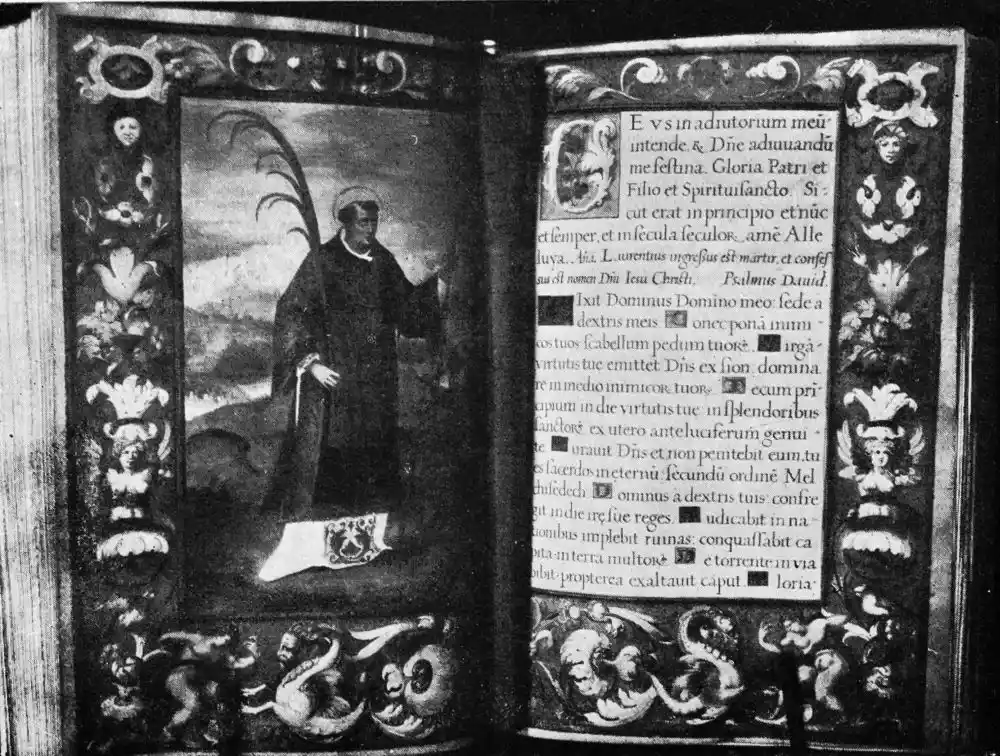 EVS in adiutorium meū
intende. & Dn̄e adiuuandū
me festina. Gloria Patri et
Filio et Spirituisancto. Si
cut erat in principio et nūc
et semper, et in secula seculor amē Alle
luya. Aña. Laurentius ingressus est martir, et confes
sus est nomen Dn̄i Iesu Christi. Psalmus Dauid.
Ixit Dominus Domino meo: sede a
dextris meis. onec ponā inimi
cos tuos scabellum pedum tuorē. irgā
virtutis tue emittet Dn̄s ex sion domina
re in medio inimicor tuor. ecum pri
cipium in die virtutis tue in splendoribus
sanctorē ex utero ante luciferum genui
te. urauit Dn̄s et non penitebit eum, tu
es sacerdos in eternū: secundū ordinē Mel
chisedech. D ominus a dextris tuis: confre
git in die irę sue reges. udicabit in na-
tionibus implebit ruinas: conquassabit ca
pita in terra multorē. D e torrente in via
bibit: propterea exaltauit caput. loria